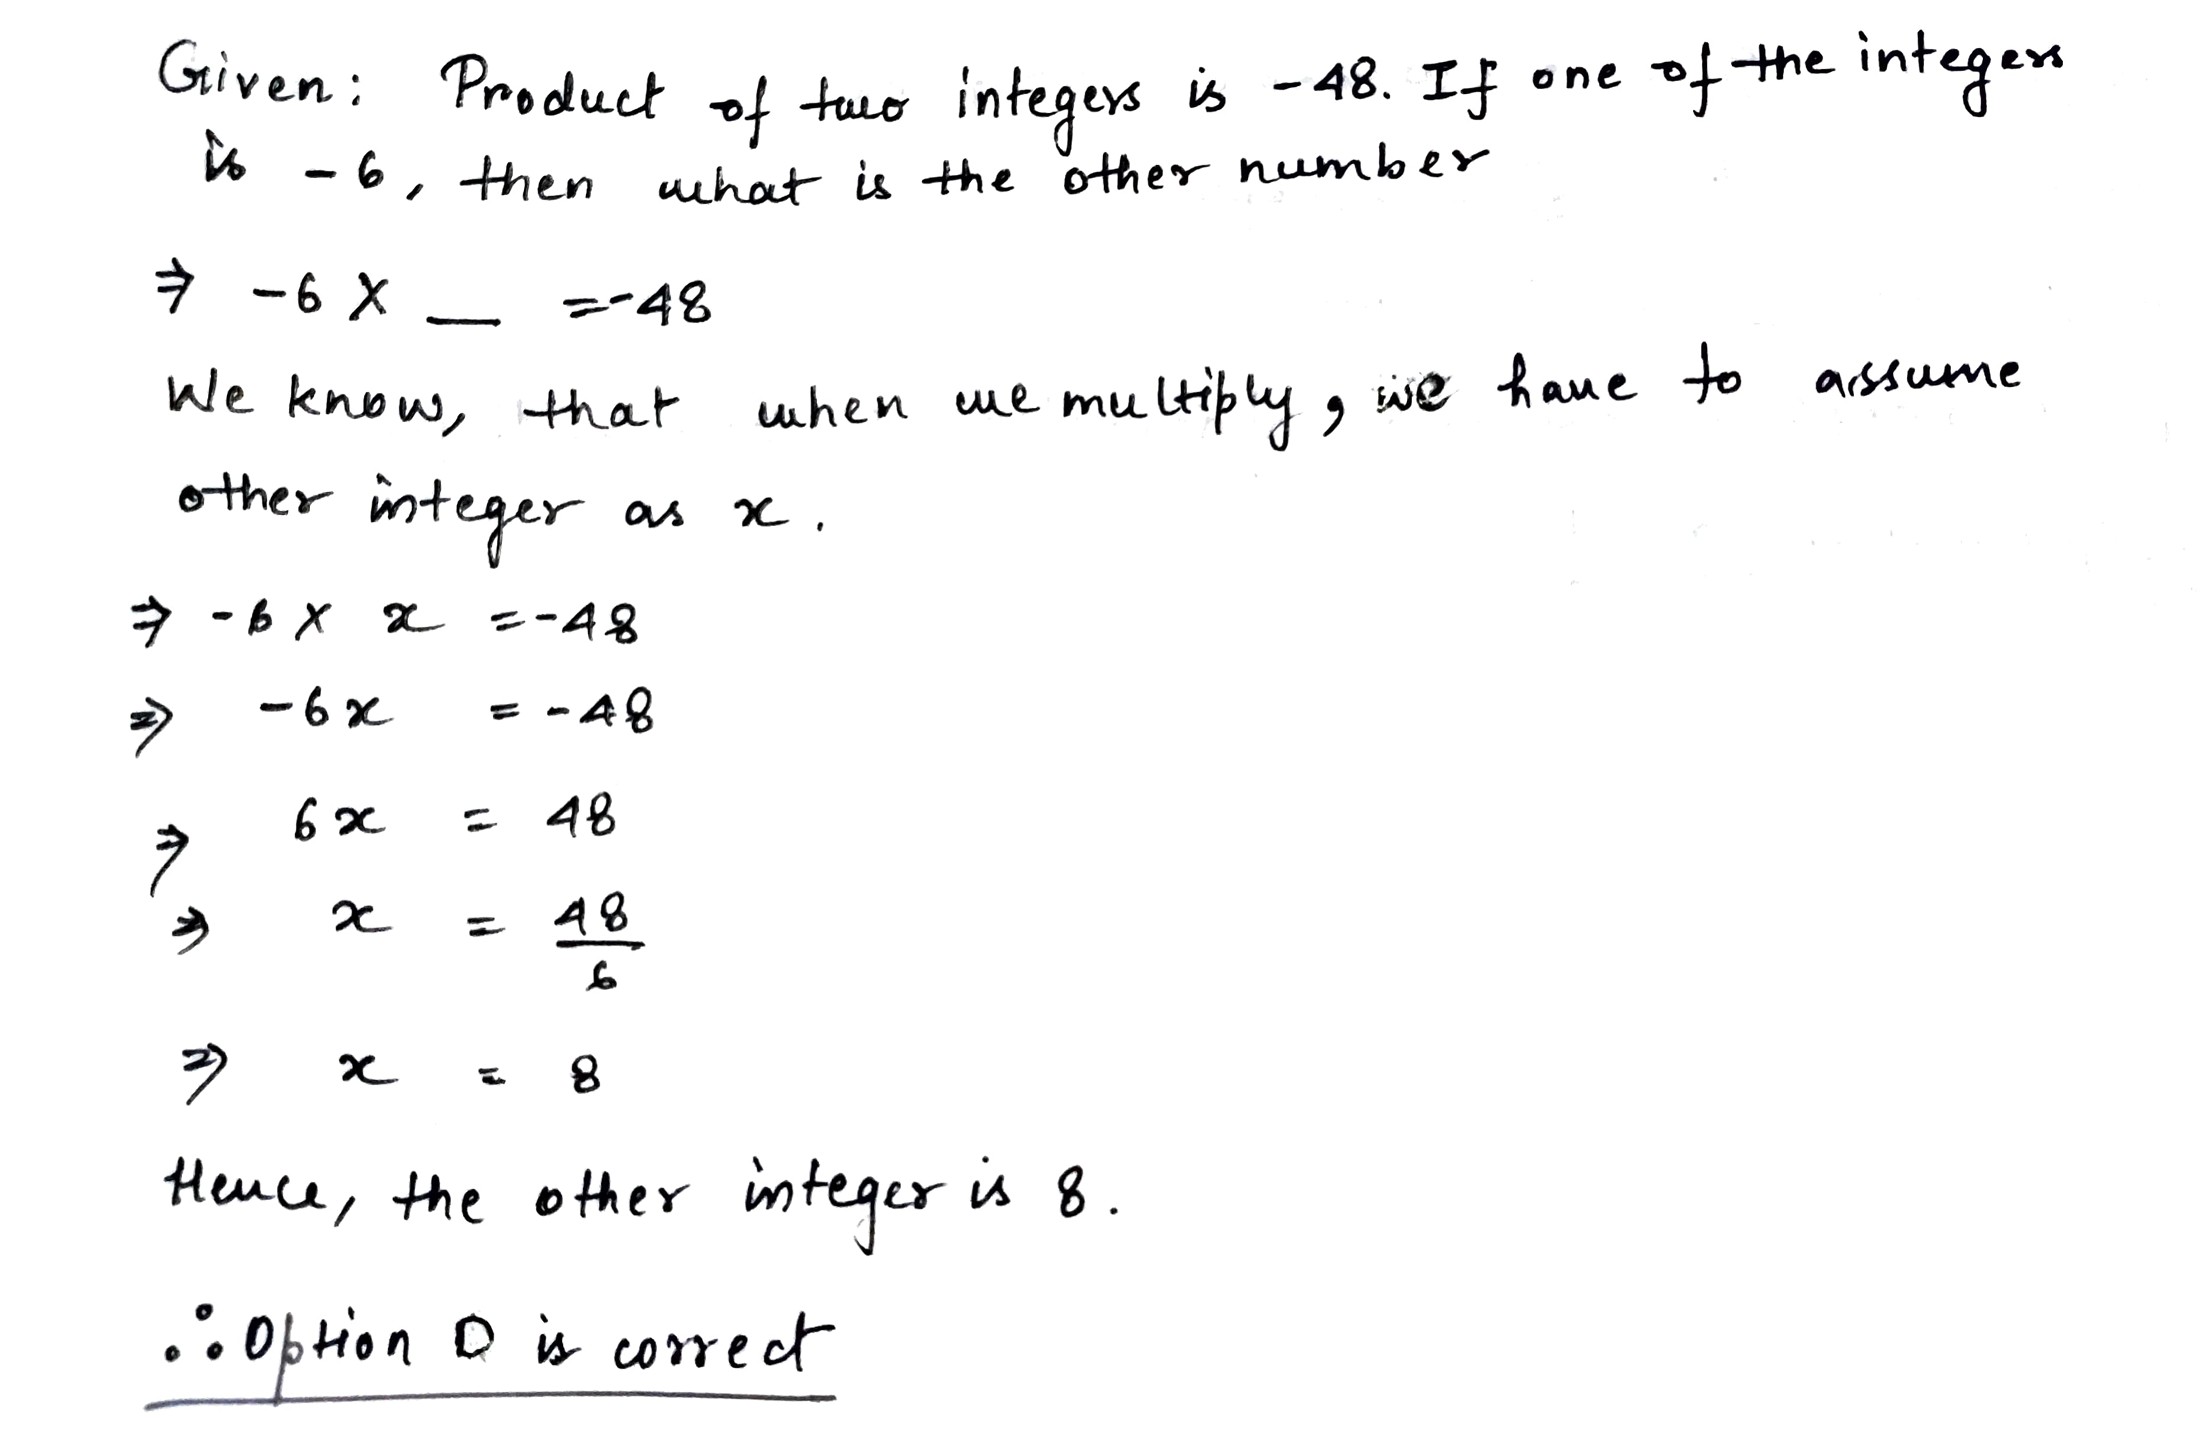 Given: Product of two integers is -48. If one of the integers
is -6, then what is the other number
⇒ -6 X __ =-48
We know, that when we multiply, we have to assume
other integer as x.
⇒ -6 X x =-48
⇒ -6x = -48
⇒ 6x = 48
⇒ x = 48/6
⇒ x = 8
Hence, the other integer is 8.
∴ Option D is correct